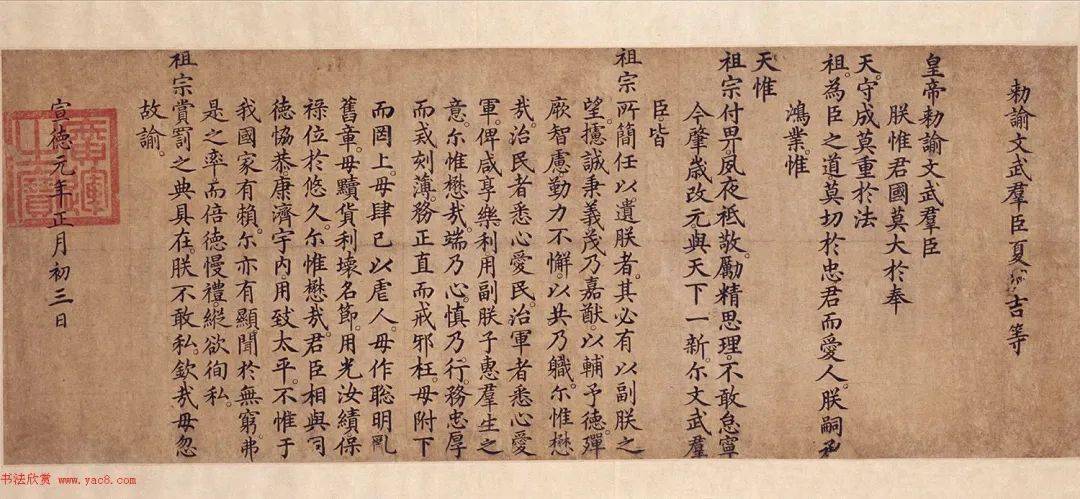 勅諭文武羣臣夏原吉等
皇帝勅諭文武羣臣
朕惟君國莫大於奉
天。守成莫重於法
祖。為臣之道莫切於忠君而愛人。朕嗣承
鴻業。惟
天惟
祖宗付畀。夙夜祗敬。勵精思理。不敢怠寧
今肇歲改元。與天下一新。尔文武羣
臣皆
祖宗所簡任以遺朕者。其必有以副朕之
望。攄誠秉義。茂乃嘉猷。以輔予德。殫
厥智慮。勤力不懈。以共乃職。尔惟懋
哉。治民者悉心愛民。治軍者悉心愛
軍。俾咸享樂利。用副朕子惠羣生之
意。尔惟懋哉。端乃心。慎乃行。務忠厚
而戒刻薄。務正直而戒邪枉。毋附下
而罔上。毋肆己以虐人。毋作聰明亂
舊章。毋黷貨利壞名節。用光汝績。保
祿位於悠久。尔惟懋哉。君臣相與。同
德恊恭。康濟宇內。用致太平。不惟于
我國家有賴。尔亦有顯聞於無窮。弗
是之率。而倍德慢禮。縱欲徇私。
祖宗賞罰之典具在。朕不敢私。欽哉毋忽
故諭。
宣德元年正月初三日
廣運之寶
书法欣赏 www.yac8.com